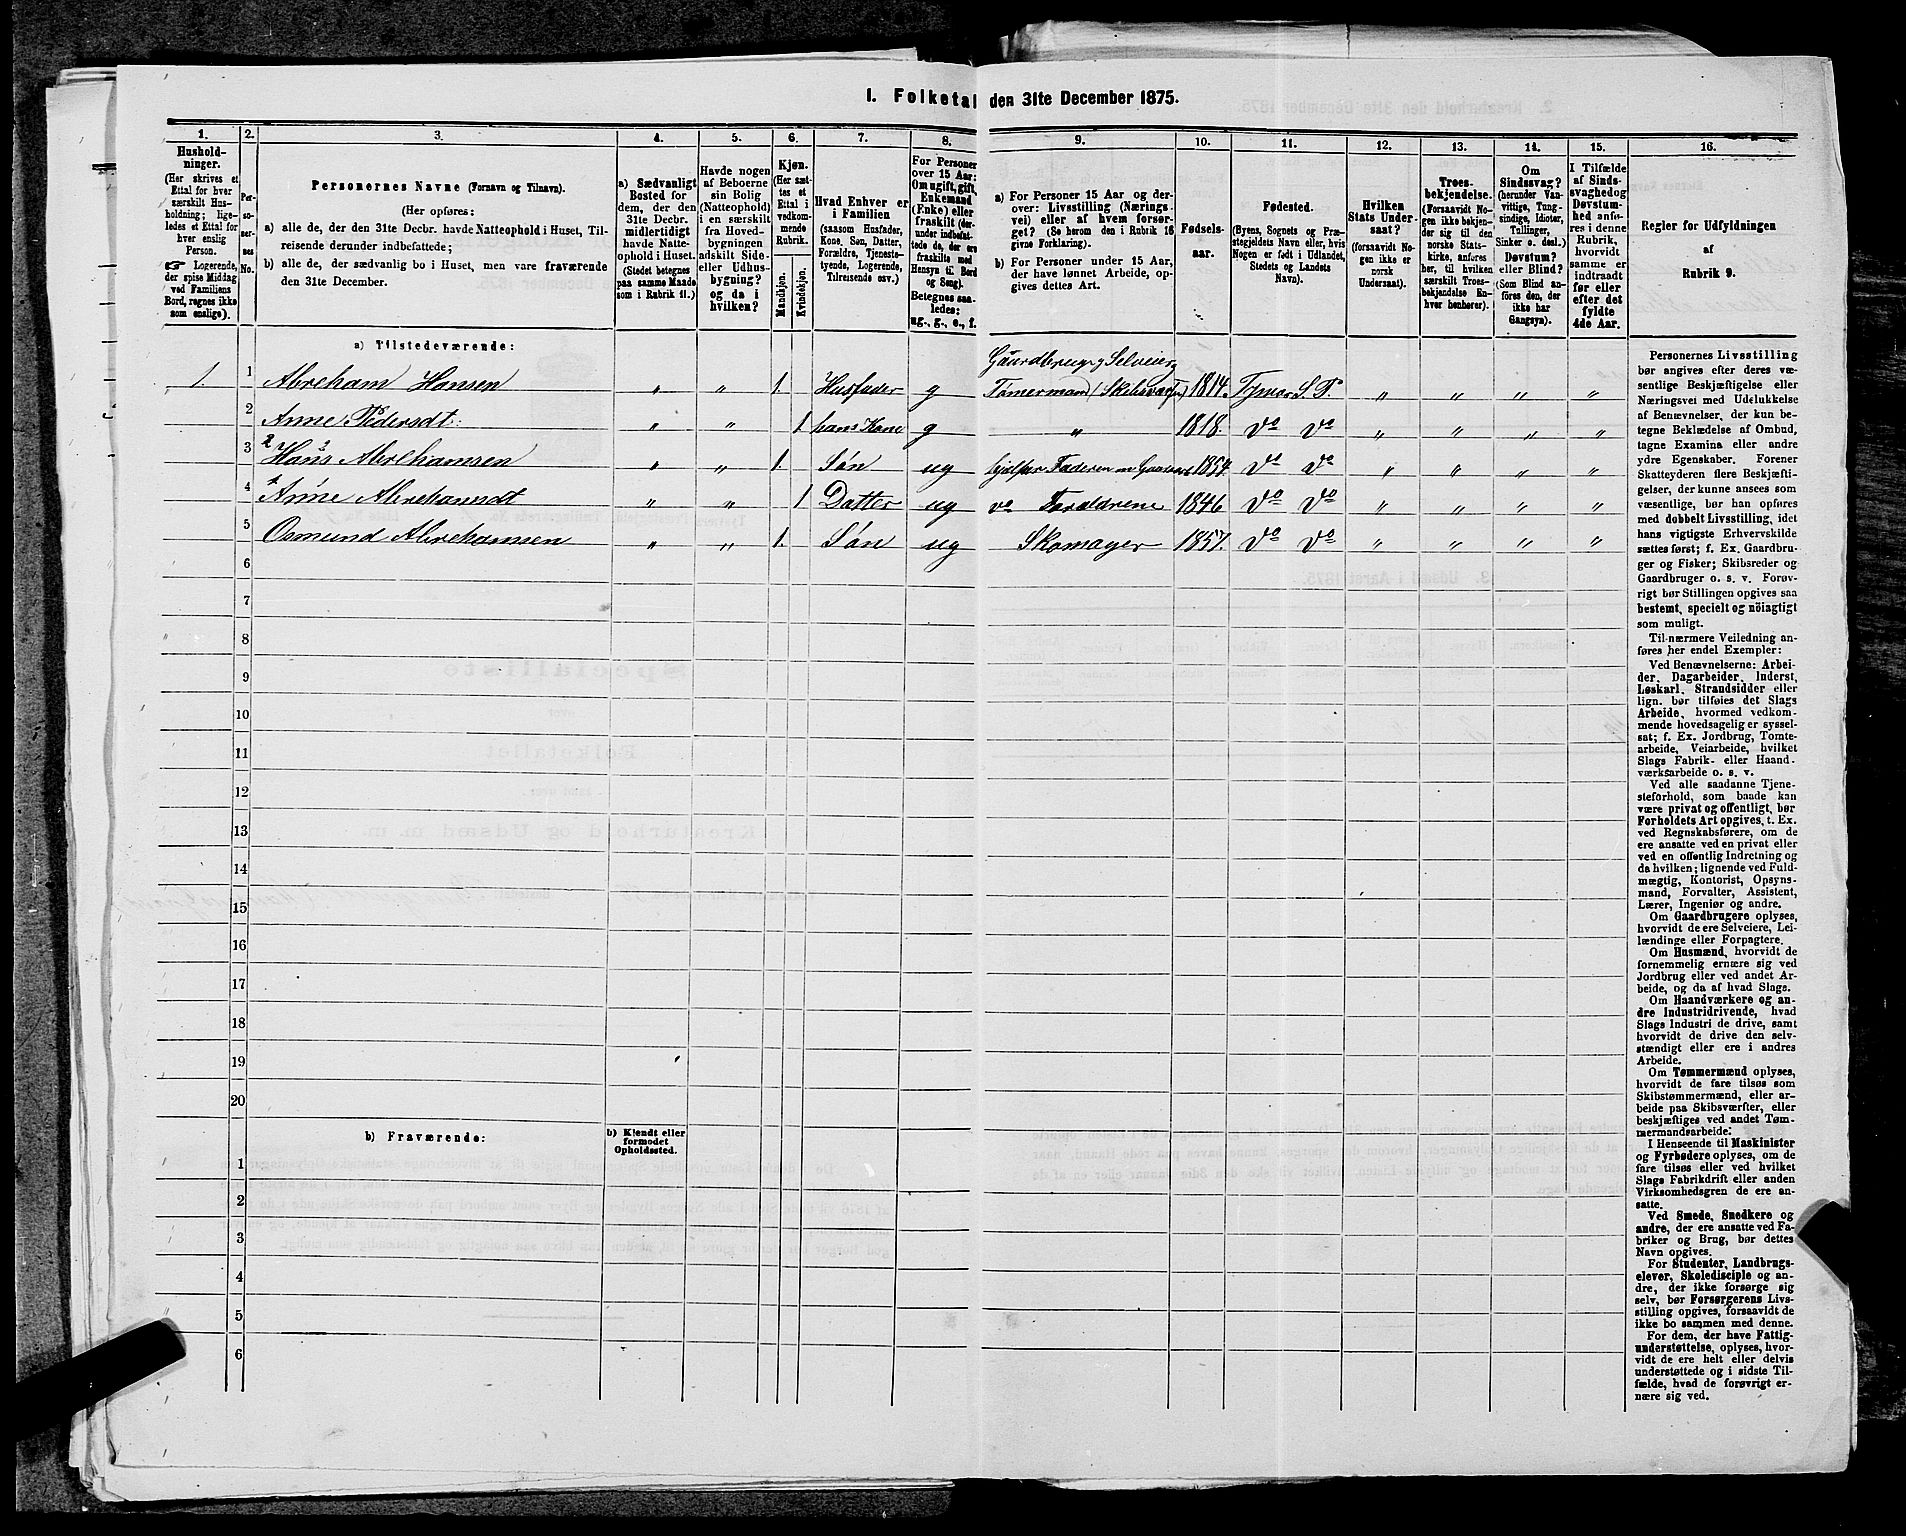 I. Folketal den 31te December 1875.
1. 2. 3. 4. 5. 6. 7. 8. 9. 10. 11. 12. 13. 14. 15. 16.
Hushold-
ninger.
(Her skrives et
Ettal for hver
særskilt Hus-
holdning; lige-
ledes et Ettal for
hver enslig
Person.
☞ Logerende,
der spise Middag
ved Familiens
Bord, regnes ikke
som enslige).
Per-
so-
ner-
nes
No.
Personernes Navne (Fornavn og Tilnavn).
(Her opføres:
a) alle de, der den 31te Decbr. havde Natteophold i Huset, Til-
reisende derunder indbefattede;
b) alle de, der sædvanlig bo i Huset, men vare fraværende
den 31te December.
a) Sædvanligt
Bosted for
dem, der den
31te Decbr.
midlertidigt
havde Natte-
ophold i Huset.
(Stedet betegnes
paa samme Maade
som i Rubrik 11.)
Havde nogen
af Beboerne
sin Bolig
(Natteophold)
i en særskilt
fra Hoved-
bygningen
adskilt Side-
eller Udhus-
bygning?
og da i
hvilken?
Kjøn.
(Her sæt-
tes et
Ettal i
vedkom-
mende
Rubrik.
Mandkjøn.
Kvindekjøn.
Hvad Enhver er
i Familien
(saasom Husfader,
Kone, Søn, Datter,
Forældre, Tjeneste-
tyende, Logerende,
Tilreisende osv.)
For Personer
over 15 Aar:
Om ugift, gift,
Enkemand
(Enke) eller
fraskilt (der-
under indbefat-
tede de, der ere
fraskilte med
Hensyn til Bord
og Seng).
Betegnes saa-
ledes:
ug., g., e., f.
a) For Personer 15 Aar og der-
over: Livsstilling (Nærings-
vei) eller af hvem forsør-
get? (Se herom den i Rubrik 16
givne Forklaring).
b) For Personer under 15 Aar,
der have lønnet Arbeide, op-
gives dettes Art.
Fødsels-
aar.
Fødested.
(Byens, Sognets og Præ-
stegjeldets Navn eller, hvis
Nogen er født i Udlandet,
Stedets og Landets
Navn).
Hvilken
Stats Under-
saat?
(forsaavidt No-
gen ikke er
norsk
Undersaat).
Troes-
bekjendelse.
(Forsaavidt No-
gen ikke bekjen-
der sig til den
norske Stats-
kirke, anføres
her, til hvilken
særskilt Troes-
bekjendelse En-
hver henhører).
Om
Sindssvag?
(herunder Van-
vittige, Tung-
sindige, Idioter,
Tullinger,
Sinker o. desl.)
Døvstum?
eller Blind?
(Som Blind an-
føres den, der
ikke har
Gangsyn).
I Tilfælde
af Sinds-
svaghed og
Døvstum-
hed anfø-
res i denne
Rubrik,
hvorvidt
samme er
indtraadt
før eller
efter det
fyldte
4de Aar.
Regler for Udfyldningen
af
Rubrik 9.
a) Tilstedeværende:
Gaardbruger, Selveier,
1. 1 Abreham Hansen " " 1. Husfader g Tømmermand (Skibsværft) 1814. S. P. " " " "
2 Anne Pedersdt. " " 1 hans Kone g " 1818. Do Do " " " "
3 Hans Abrehamsen " " 1. Søn ug hjelper Faderen 1854. Do Do " " " "
4 Anne Abrehamsdt " " 1 Datter ug do Forældrene 1846 Do Do " " " "
5 Osmund Abrehamsen " " 1. Søn ug Skomager 1857. Do Do " " " "
6
7
8
9
10
11
12
13
14
15
16
17
18
19
20
b) Fraværende:
b) Kjendt eller
formodet
Opholdssted.
1
2
3
4
5
6
Personernes Livsstilling
bør angives efter deres væ-
sentlige Beskjæftigelse eller
Næringsvei med Udelukkelse
af Benævnelser, der kun be-
tegne Beklædelse af Ombud,
tagne Examina eller andre
ydre Egenskaber. Forener
Skatteyderen flere Beskjæfti-
gelser, der kunne ansees som
væsentlige, bør han opføres
med dobbelt Livsstilling, idet
hans vigtigste Erhvervskilde
sættes først; f. Ex. Gaardbru-
ger og Fisker; Skibsreder og
Gaardbruger o. s. v. Forøv-
rigt bør Stillingen opgives saa
bestemt, specielt og nöiagtigt
som muligt.
Til nærmere Veiledning an-
føres her endel Exempler:
Ved Benævnelserne: Arbei-
der, Dagarbeider, Inderst,
Løskarl, Strandsidder eller
lign. bør tilføies det Slags
Arbeide, hvormed vedkom-
mende hovedsagelig er syssel-
sat; f. Ex. Jordbrug, Tomte-
arbeide, Veiarbeide, hvilket
Slags Fabrik- eller Haand-
værksarbeide o. s. v.
Ved alle saadanne Tjene-
steforhold, som baade kan
være privat og offentligt, bør
Forholdets Art opgives, t. Ex.
ved Regnskabsførere, om de
ere ansatte ved en privat eller
ved en offentlig Indretning og
da hvilken; lignende ved Fuld-
mægtig, Kontorist, Opsyns-
mand, Forvalter, Assistent,
Lærer, Ingeniør og andre.
Om Gaardbrugere oplyses,
hvorvidt de ere Selveiere, Lei-
lændinge eller Forpagtere.
Om Husmænd, hvorvidt de
fornemmelig ernære sig ved
Jordbrug eller ved andet Ar-
beide, og da af hvad Slags.
Om Haandværkere og an-
dre Industridrivende, hvad
Slags Industri de drive, samt
hvorvidt de drive den selv-
stændigt eller ere i andres
Arbeide.
Om Tømmermænd oplyses,
hvorvidt de fare tilsøs som
Skibstømmermænd, eller ar-
beide paa Skibsværfter, eller
beskjæftiges ved andet Tøm-
mermandsarbeide.
I Henseende til Maskinister
og Fyrbødere oplyses, om de
fare tilsøs eller ved hvilket
Slags Fabrikdrift eller anden
Virksomhedsgren de ere an-
satte.
Ved Smede, Snedkere og
andre, der ere ansatte ved Fa-
briker og Brug, bør dettes
Navn opgives.
For Studenter, Landbrugs-
elever, Skoledisciple og an-
dre, der ikke forsørge sig
selv, bør Forsørgerens Livs-
stilling opgives, forsaavidt de
ikke bo sammen med denne.
For dem, der have Fattig-
understøttelse, oplyses, hvor-
vidt de ere helt eller delvis
understøttede og i sidste Til-
fælde, hvad de forøvrigt er-
nære sig ved.